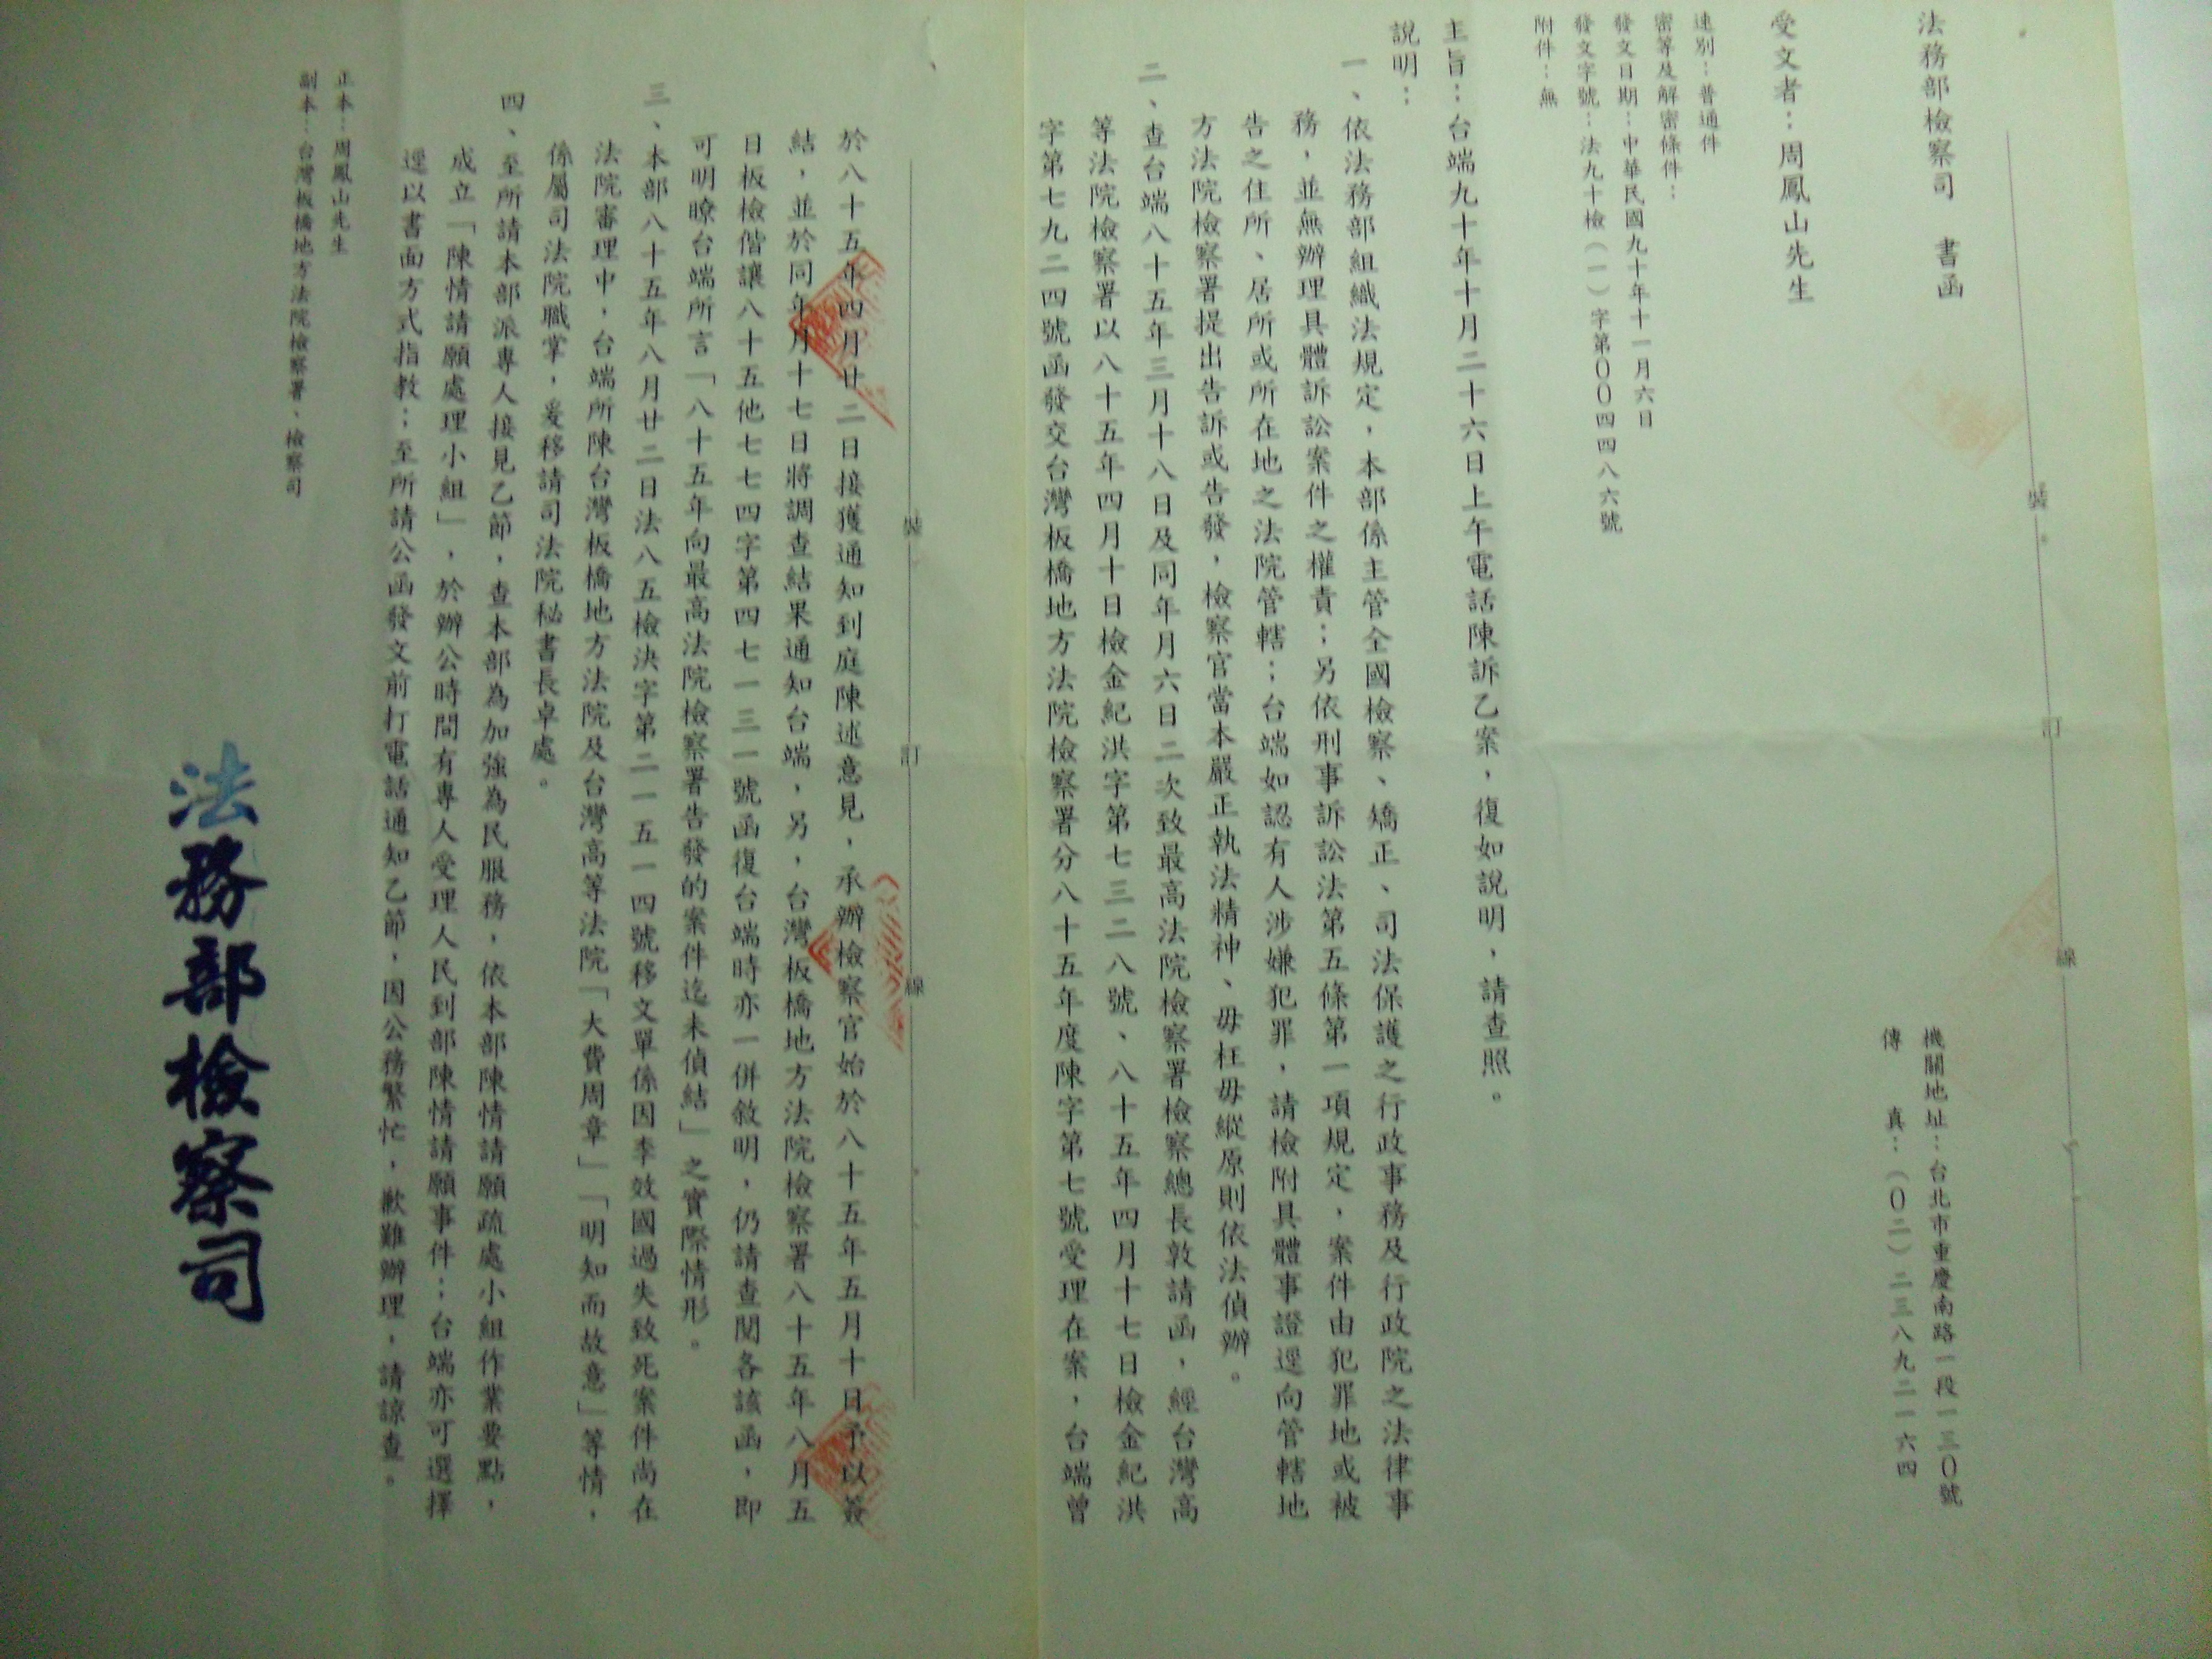 法務部檢察司　書函
機關地址：台北市重慶南路一段一三０號
傳　　真：（０二）二三八九二一六四
受文者：周鳳山先生
速別：普通件
密等及解密條件：
發文日期：中華民國九十年十一月六日
發文字號：法九十檢（一）字第００四四八六號
附件：無
主旨：台端九十年十月二十六日上午電話陳訴乙案，復如說明，請查照。
說明：
一、依法務部組織法規定，本部係主管全國檢察、矯正、司法保護之行政事務及行政院之法律事
務，並無辦理具體訴訟案件之權責；另依刑事訴訟法第五條第一項規定，案件由犯罪地或被
告之住所、居所或所在地之法院管轄；台端如認有人涉嫌犯罪，請檢附具體事證逕向管轄地
方法院檢察署提出告訴或告發，檢察官當本嚴正執法精神、毋枉毋縱原則依法偵辦。
二、查台端八十五年三月十八日及同年月六日二次致最高法院檢察署檢察總長敦請函，經台灣高
等法院檢察署以八十五年四月十日檢金紀洪字第七三二八號、八十五年四月十七日檢金紀洪
字第七九二四號函發交台灣板橋地方法院檢察署分八十五年度陳字第七號受理在案，台端曾
裝
訂
線
於八十五年四月廿二日接獲通知到庭陳述意見，承辦檢察官始於八十五年五月十日予以簽
結，並於同年月十七日將調查結果通知台端，另，台灣板橋地方法院檢察署八十五年八月五
日板檢偕讓八十五他七七四字第四七一三一號函復台端時亦一併敘明，仍請查閱各該函，即
可明瞭台端所言「八十五年向最高法院檢察署告發的案件迄未偵結」之實際情形。
三、本部八十五年八月廿二日法八五檢決字第二一五一四號移文單係因李效國過失致死案件尚在
法院審理中，台端所陳台灣板橋地方法院及台灣高等法院「大費周章」「明知而故意」等情，
係屬司法院職掌，爰移請司法院秘書長卓處。
四、至所請本部派專人接見乙節，查本部為加強為民服務，依本部陳情請願疏處小組作業要點，
成立「陳情請願處理小組」，於辦公時間有專人受理人民到部陳情請願事件；台端亦可選擇
逕以書面方式指教；至所請公函發文前打電話通知乙節，因公務繁忙，歉難辦理，請諒查。
正本：周鳳山先生
副本：台灣板橋地方法院檢察署、檢察司
法務部檢察司
裝
訂
線